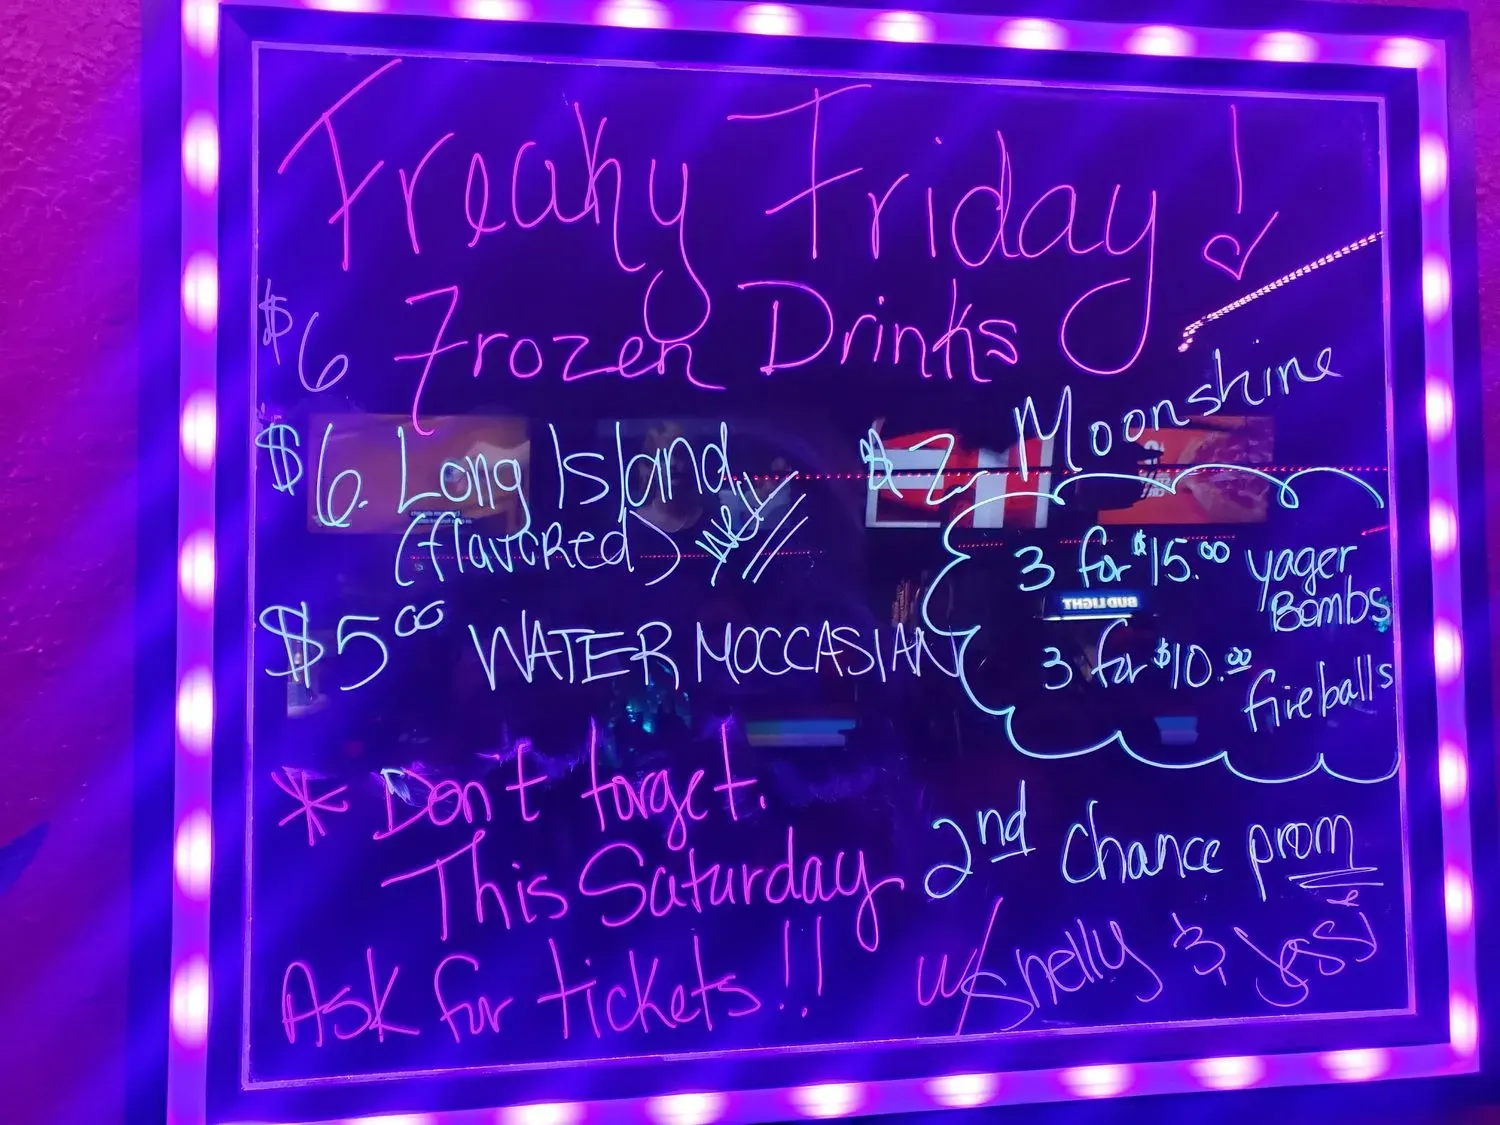 Freaky Friday!
$6 Frozen Drinks
$6. Long Island
(flavored)
$2 Moonshine
3 for $15.00 yager
Bombs
3 for $10.00
fireballs
$5.00 WATER MOCCASIAN
* Don't forget.
This Saturday
Ask for tickets!!
2nd Chance prom
w/Shelly & Jessi
BUD LIGHT